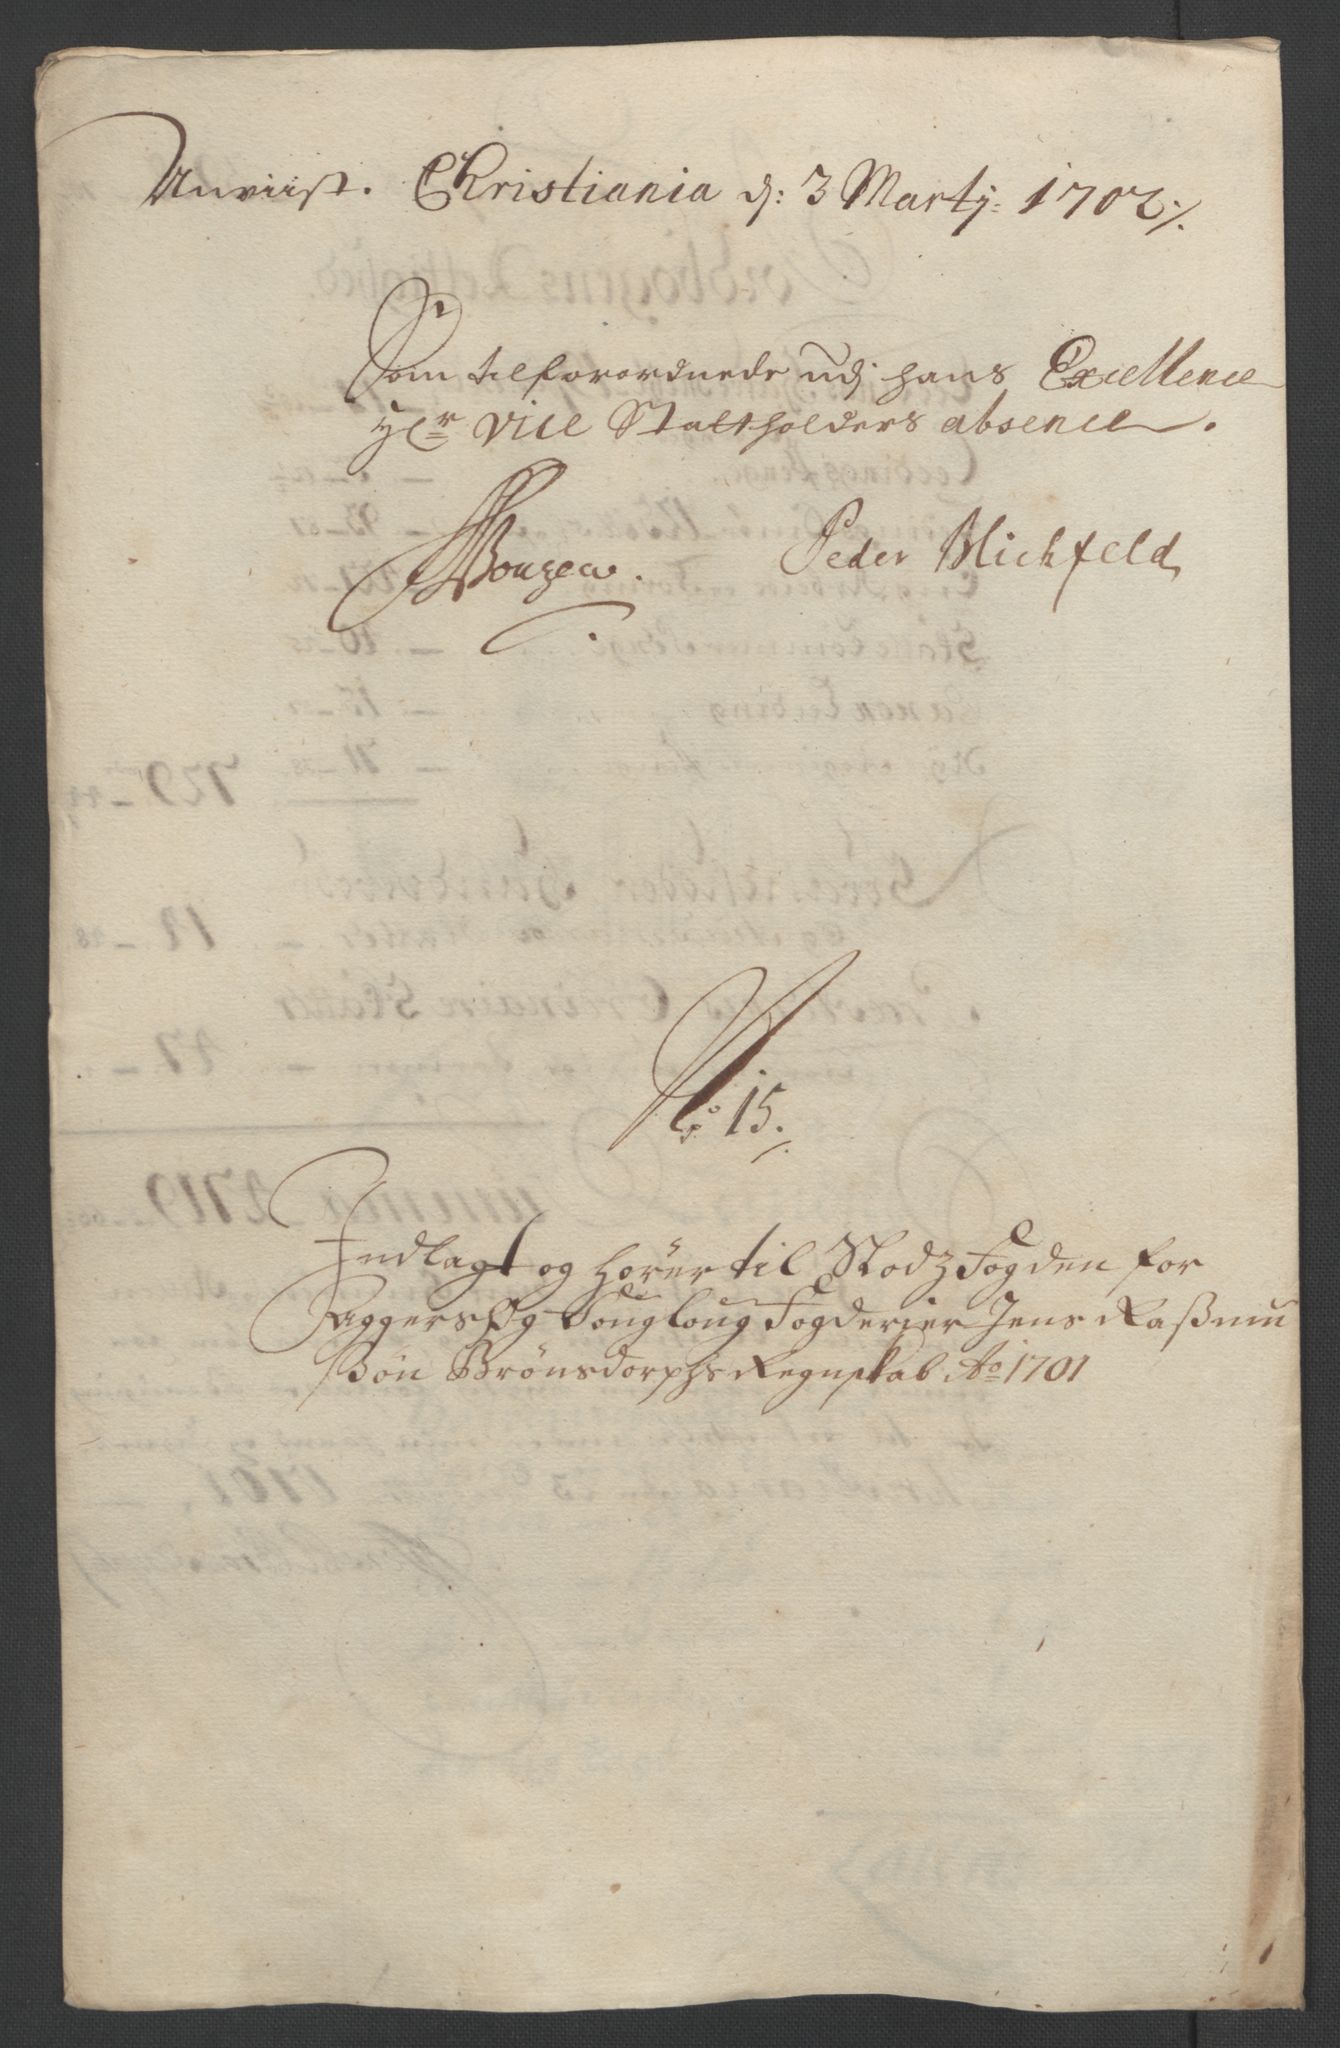 Anviist. Christiania d: 3 Martj: 1702 ⁒
Som tilforordnede udj hans Excellence
Hr: Vice Statthollders absence.
Peder Michfeld
No: 15.
Indlagt og hörer til Slodz Fogden for
Aggers og Fogderier Jens Raßmu
ßön Brönsdorphs Regnskab Ao 1701